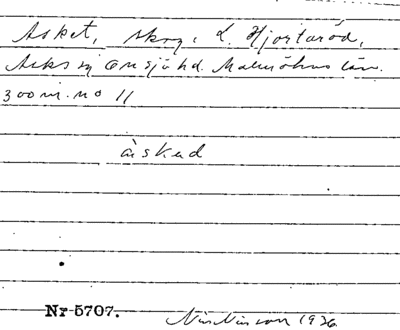 Asket, skog, L. Hjortaröd,
Asks sn Onsjö hd. Malmöhus län.
300 m. no 11
àskad
Nr 5707. Nils Nilsson 1936